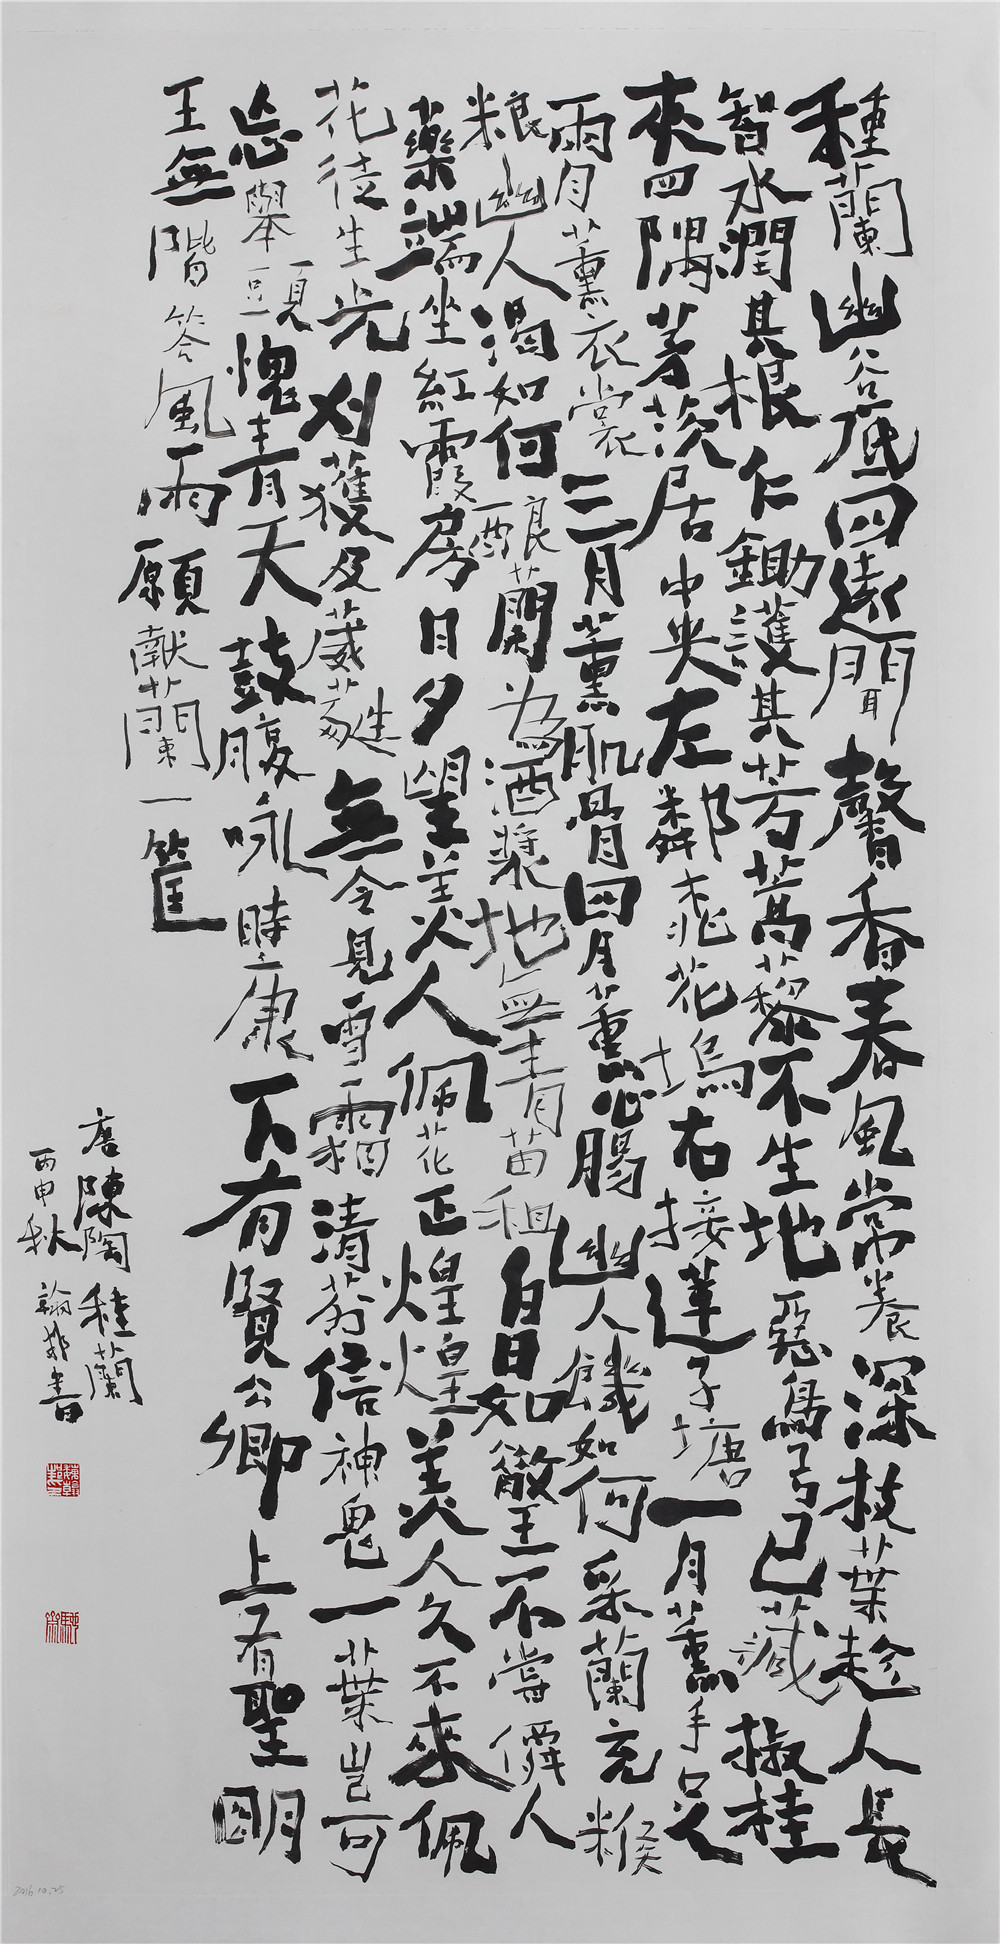 種蘭幽谷底四遠聞馨香春風常養深枝葉趁人長
智水潤其根仁鋤護其芳蒿藜不生地惡鳥弓已藏椒桂
夾四隅茅茨居中央左鄰桃花塢右接蓮子塘一月薰手足
兩月薰衣裳三月薰肌骨四月薰心腸幽人饑如何采蘭充糇
糧幽人渴如何醞蘭為酒漿地無青苗租白日如散王不嘗僊人
藥端坐紅霞房日夕望美人佩花正煌煌美人久不來佩
花徒生光刈獲及葳蕤無令見雪霜清芬信神鬼一葉豈可
忘舉頭愧青天鼓腹咏時康下有賢公卿上有聖明
王無階答風雨願獻蘭一筐
唐陳陶種蘭
丙申秋翰韜書
2016.10.25